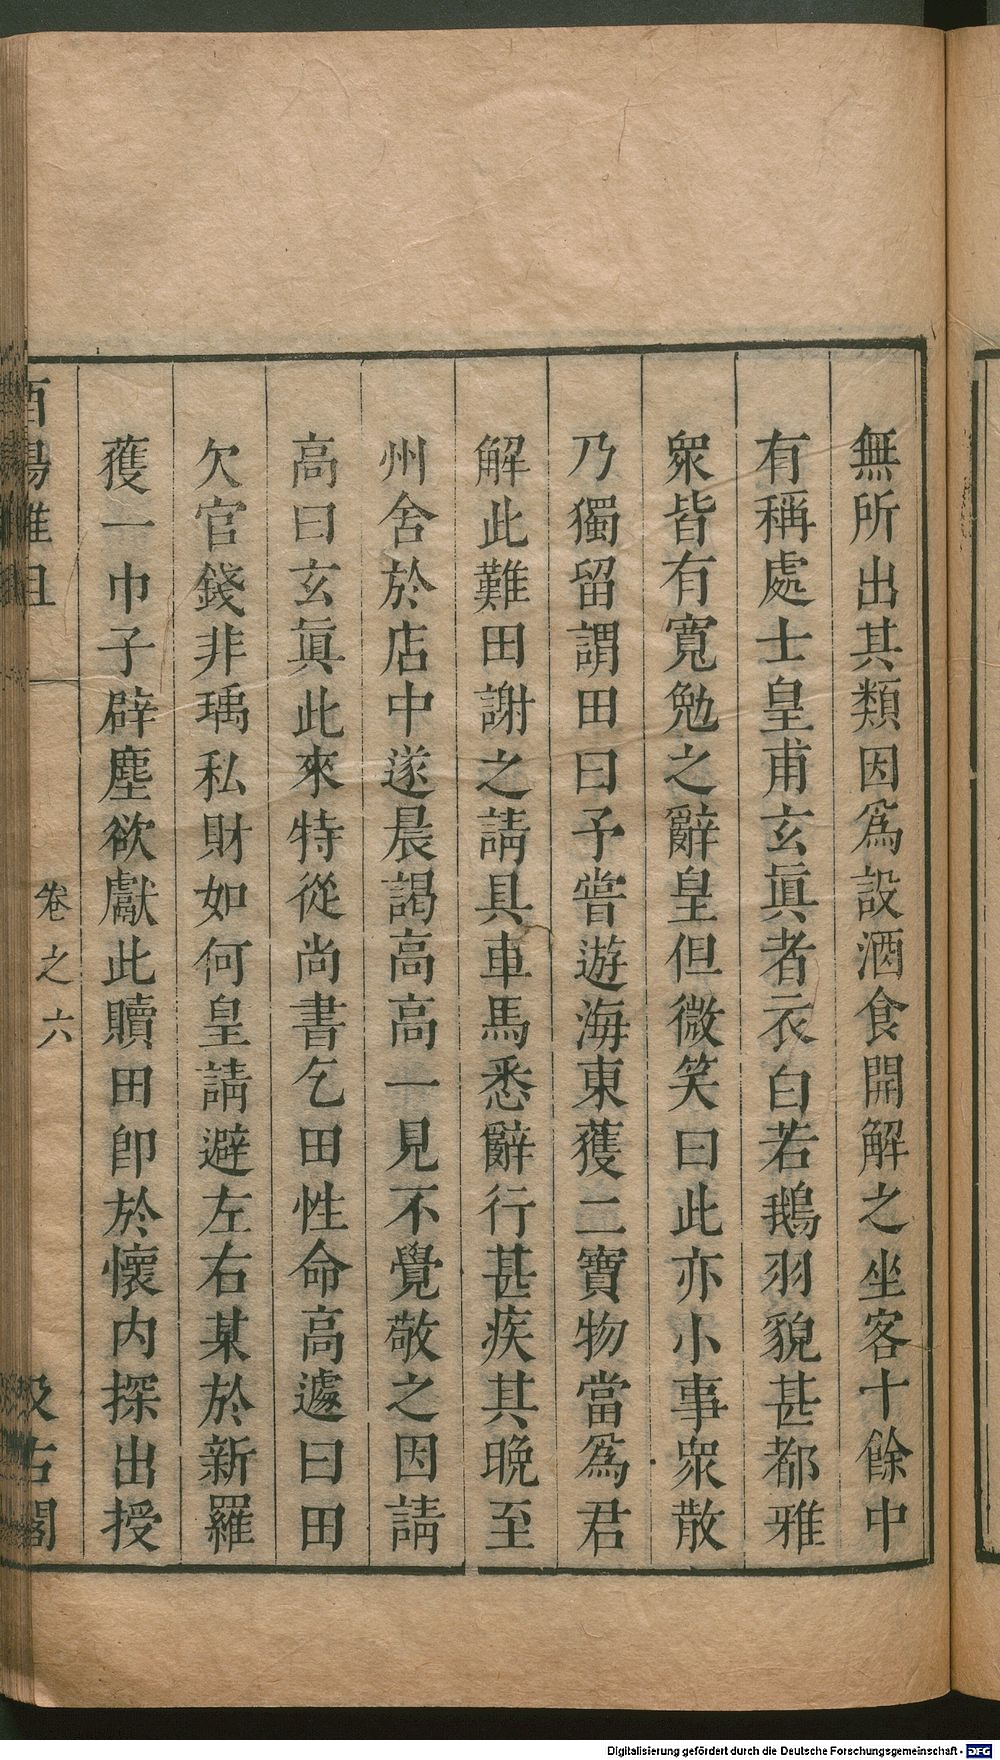 無所出其類因爲設酒食開解之坐客十餘中
有稱處士皇甫玄眞者衣白若鵝羽貌甚都雅
衆皆有寬勉之辭皇但微笑曰此亦小事衆散
乃獨留謂田曰予嘗遊海東獲二寶物當爲君
解此難田謝之請具車馬悉辭行甚疾其晚至
州舍於店中遂晨謁高高一見不覺敬之因請
高曰玄眞此來特從尚書乞田性命高遽曰田
欠官錢非瑀私財如何皇請避左右某於新羅
獲一巾子辟塵欲獻此贖田卽於懷内探出授
酉陽雜俎
卷之六
汲古閣
Digitalisierung gefördert durch die Deutsche Forschungsgemeinschaft - DFG